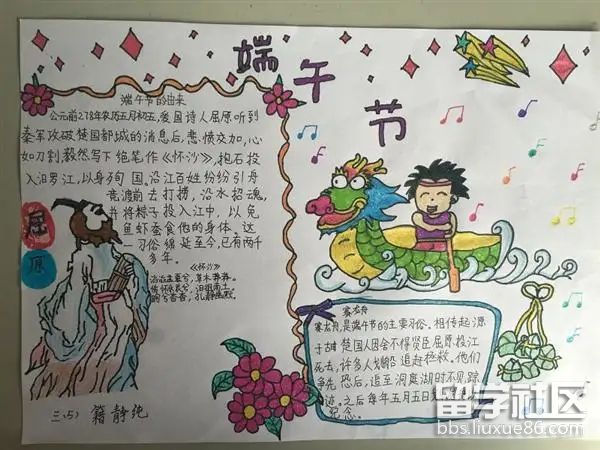 端午节
端午节的由来
公元前278年农历五月初五,爱国诗人屈原听到
秦军攻破楚国都城的消息后,悲愤交加,心
如刀割毅然写下绝笔作《怀沙》,抱石投
入汨罗江,以身殉国。沿江百姓纷纷引舟
竞渡前去打捞,沿水招魂,
并将粽子投入江中,以免
鱼虾蚕食他的身体。这
一习俗绵延至今,已有两千
多年。
《怀沙》
屈
原
三、(5) 籍静纯
赛龙舟
赛龙舟,是端午节的主要习俗。相传起源
于古时楚国人因舍不得贤臣屈原投江
死去,许多人划船追赶拯救。他们
争先恐后,追至洞庭湖时不见踪
迹。之后每年五月五日
纪念。
留学社区
bbs.liuxue86.com